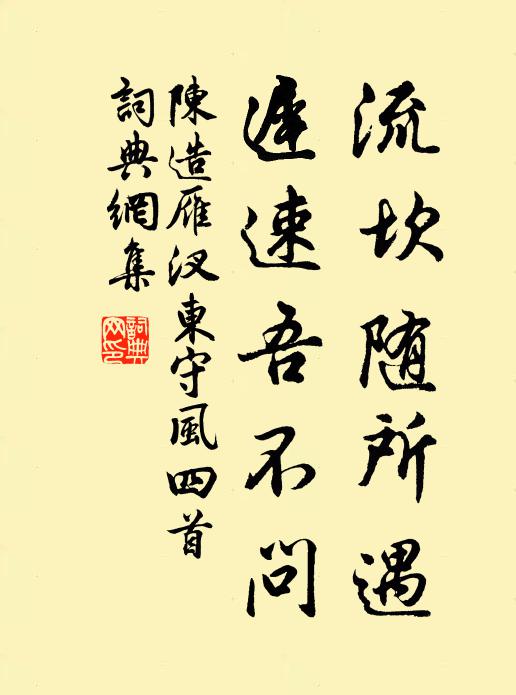 流坎随所遇
遲速吾不問
陳造雁汊東守風四首
詞典網集
詞典
网印